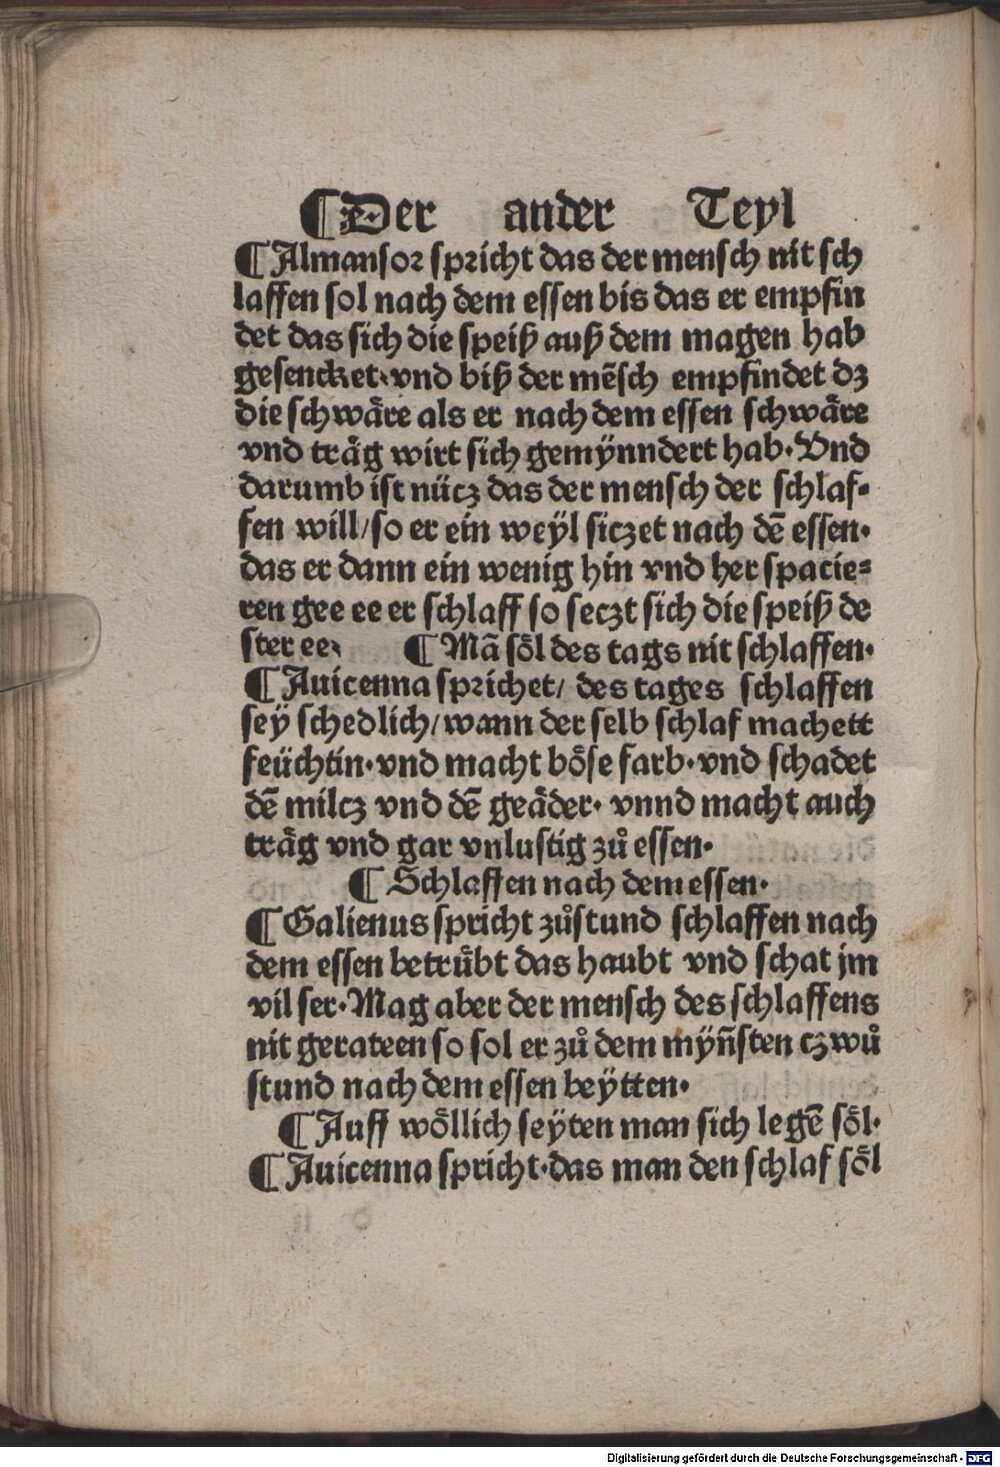 ¶Der ander Teyl
¶Almansor spricht das der mensch nit sch
laffen sol nach dem essen bis das er empfin
det das sich die speiß auß dem magen hab
gesencket·vnd biß der mēsch empfindet dz
die schwäre als er nach dem essen schwäre
vnd träg wirt sich gemÿnndert hab·Vnd
darumb ist nücz das der mensch der schlaf-
fen will/so er ein weÿl siczet nach dē essen·
das er dann ein wenig hin vnd her spacie-
ren gee ee er schlaff so seczt sich die speiß de
ster ee· ¶Mā söl des tags nit schlaffen·
¶Auicenna sprichet/ des tages schlaffen
seÿ schedlich/wann der selb schlaf machett
feüchtin·vnd macht böse farb·vnd schadet
dē milcz vnd dē geäder· vnnd macht auch
träg vnd gar vnlustig zů essen·
¶Schlaffen nach dem essen·
¶Galienus spricht zůstund schlaffen nach
dem essen betrübt das haubt vnd schat jm
vil ser·Mag aber der mensch des schlaffens
nit gerateen so sol er zů dem mÿn̄sten czwů
stund nach dem essen beÿtten·
¶Auff wöllich seÿten man sich legē söl·
¶Auicenna spricht·das man den schlaf söl
Digitalisierung gefördert durch die Deutsche Forschungsgemeinschaft - DFG